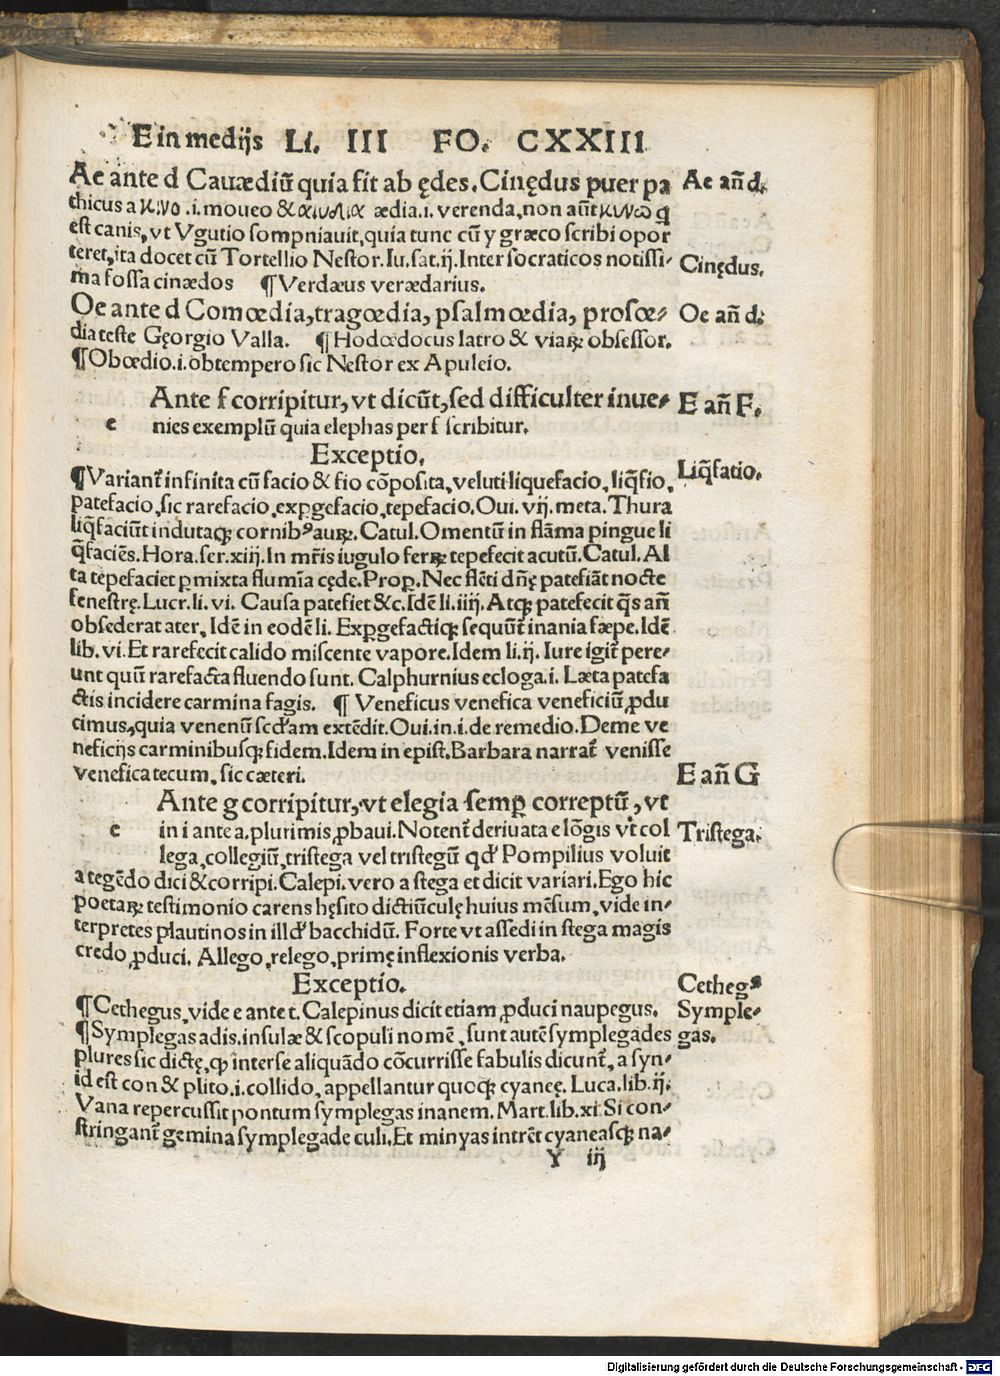 E in medijs Li. III FO. CXXIII
Ae ante d Cauædiũ quia fit ab ędes. Cinędus puer pa
thicus a κινο .i. moueo & αιυλια ædia.i. verenda, non aũt κυνω q̃
est canis, vt Vgutio sompniauit, quia tunc cũ y græco scribi opor
teret, ita docet cũ Tortellio Nestor. Iu. sat. ij. Inter socraticos notissi-
ma fossa cinædos ¶ Verdæus verædarius.
Oe ante d Comœdia, tragœdia, psalmœdia, prosœ-
dia teste Gęorgio Valla. ¶ Hodœdocus latro & viaꝝ obsessor.
¶ Obœdio.i. obtempero sic Nestor ex Apuleio.
Ante f corripitur, vt dicũt, sed difficulter inue-
e nies exemplũ quia elephas per f scribitur.
Exceptio.
¶ Variant̃ infinita cũ facio & fio cõposita, veluti liquefacio, liq̃fio,
patefacio, sic rarefacio, exꝑgefacio, tepefacio. Oui. vij. meta. Thura
liq̃faciũt indutaqꝫ cornibꝰ auꝝ. Catul. Omentũ in flãma pingue li
q̃faciẽs. Hora. ser. xiij. In mr̃is iugulo ferꝝ tepefecit acutũ. Catul. Al
ta tepefaciet ꝑmixta flumĩa cęde. Prop. Nec flẽti dñę patefiãt nocte
fenestrę. Lucr. li. vi. Causa patefiet &c. Idẽ li. iiij. Atqꝫ patefecit q̃s añ
obsederat ater. Idẽ in eodẽ li. Exꝑgefactiqꝫ sequũt̃ inania sæpe. Idẽ
lib. vi. Et rarefecit calido miscente vapore. Idem li. ij. Iure igit̃ pere-
unt quũ rarefacta fluendo sunt. Calphurnius ecloga. i. Læta patefa
ctis incidere carmina fagis. ¶ Veneficus venefica veneficiũ, ꝓdu
cimus, quia venenũ scd'am extẽdit. Oui. in. i. de remedio. Deme ve
neficijs carminibusqꝫ fidem. Idem in epist. Barbara narrat̃ venisse
venefica tecum, sic cæteri.
Ante g corripitur, vt elegia semꝑ correptũ, vt
e in i ante a. plurimis, ꝓbaui. Notent̃ deriuata e lõgis vt col
lega, collegiũ, tristega vel tristegũ qd' Pompilius voluit
a tegẽdo dici & corripi. Calepi. vero a stega et dicit variari. Ego hic
poetaꝝ testimonio carens hęsito dictiũculę huius mẽsum, vide in-
terpretes plautinos in illd' bacchidũ. Forte vt assedi in stega magis
credo, ꝓduci. Allego, relego, primę inflexionis verba.
Exceptio.
¶ Cethegus, vide e ante t. Calepinus dicit etiam, ꝓduci naupegus.
¶ Symplegas adis. insulæ & scopuli nomẽ, sunt autẽ symplegades
plures sic dictę, qꝫ inter se aliquãdo cõcurrisse fabulis dicunt̃, a syn-
id est con & plito.i. collido, appellantur quoqꝫ cyaneę. Luca. lib. ij.
Vana repercussit pontum symplegas inanem. Mart. lib. xi. Si con-
stringant̃ gemina symplegade culi, Et minyas intrẽt cyaneasqꝫ na-
Y iij
Ae añ d.
Cinędus.
Oe añ d.
E añ F.
Liq̃fatio.
E añ G
Tristega.
Cethegꝰ
Symple-
gas.
Digitalisierung gefördert durch die Deutsche Forschungsgemeinschaft - DFG